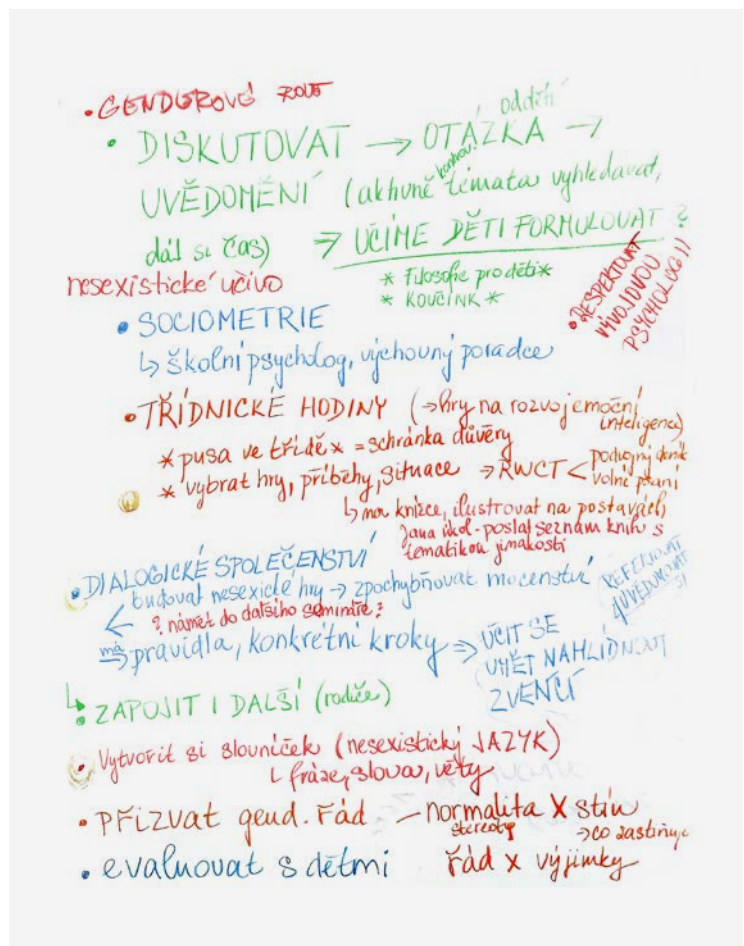 • GENDEROVÉ ROLE
oddělí
• DISKUTOVAT → OTÁZKA →
UVĚDOMĚNÍ (aktivně témata vyhledávat,
dál si čas) ⇒ UČÍME DĚTI FORMULOVAT ?
nesexistické učivo
* Filosofie pro děti *
* KOUČINK *
• RESPEKTOVAT
VÝVOJOVOU
PSYCHOLOGII
• SOCIOMETRIE
↳ školní psycholog, výchovný poradce
• TŘÍDNICKÉ HODINY (→ hry na rozvoj emoční
inteligence)
* pusa ve třídě * = schránka důvěry
* vybrat hry, příběhy, situace → RWCT < podvojný deník
volné psaní
↳ v knížce, ilustrovat na postavách
Jana úkol - poslat seznam knih s
tematikou jinakosti
• DIALOGICKÉ SPOLEČENSTVÍ
budovat nesexické hry → zpochybňovat mocenství
REFLEKTOVAT
UVĚDOMOVAT
SI
? námět do dalšího semináře ?
má
⇒ pravidla, konkrétní kroky ⇒ UČIT SE
UMĚT NAHLÍDNOUT
ZVENČÍ
↳ • ZAPOJIT I DALŠÍ (rodiče)
• Vytvořit si slovníček (nesexistický JAZYK)
└ fráze, slova, věty
• Přizvat gend. řád – normalita X stín
stereotyp → co zastiňuje
• evaluovat s dětmi řád x výjimky